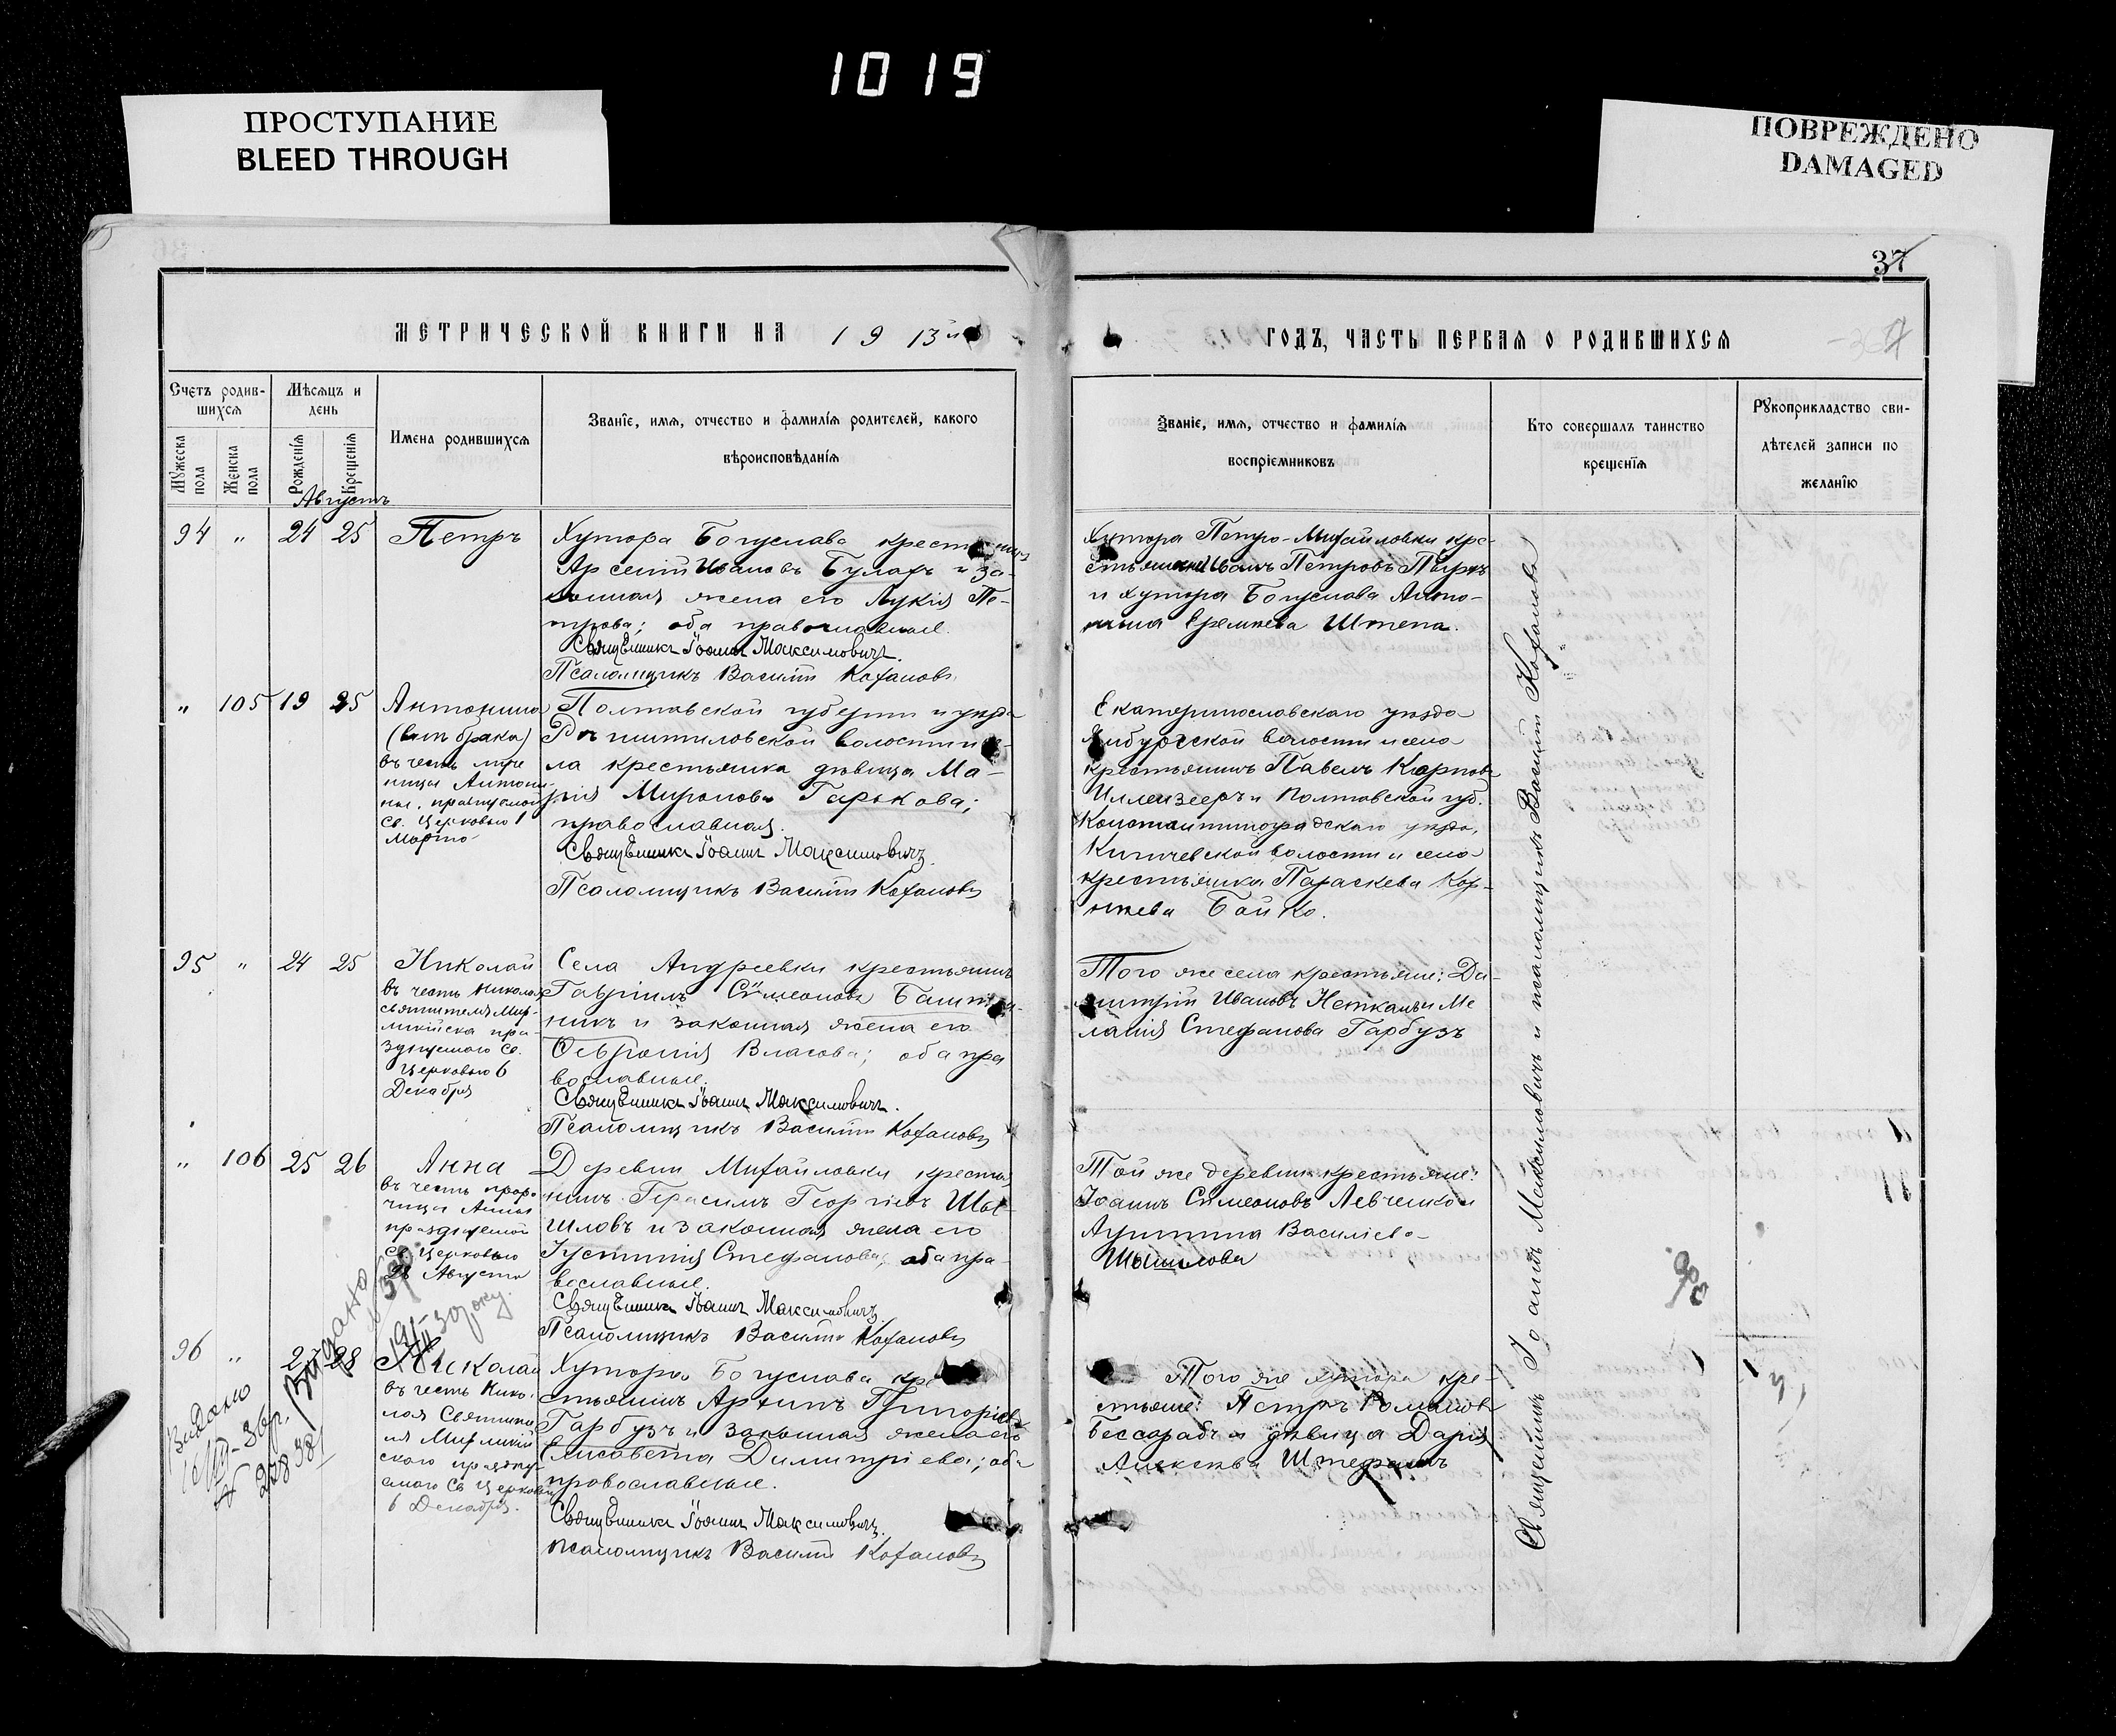 1019
ПРОСТУПАНИЕ
BLEED THROUGH
ПОВРЕЖДЕНО
DAMAGED
37
МЕТРИЧЕСКОЙ КНИГИ НА 1913й
ГОДЪ, ЧАСТЬ ПЕРВАЯ О РОДИВШИХСЯ
Счетъ родив-
шихся
Мужеска пола
Женска пола
Мѣсяцъ и
день
Рожденїя
Крещенїя
Имена родившихся
Званїе, имя, отчество и фамилїя родителей, какого
вѣроисповѣданїя
Званїе, имя, отчество и фамилїя
воспрїемниковъ
Кто совершалъ таинство
крещенїя
Рукоприкладство сви-
дѣтелей записи по
желанїю
Августъ
94 " 24 25
Петръ
Хутора Богуслава крестьянинъ
Арсеній Ивановъ Булахъ и за-
конная жена его Лукія Пе-
трова; оба православные.
Священникъ Іоаннъ Максимовичъ.
Псаломщикъ Василій Кохановъ
Хутора Петро-Михайловки кре-
стьянинъ Иванъ Петровъ
и хутора Богуслава Анто-
нина Еремиева Штепа.
" 105 19 25
Антонина
(внѣ брака)
въ честь муче
ницы Антони
ны, празднуемой
Св. Церковью 1
Марта
Полтавской губерніи и уѣзда
волости и се-
ла крестьянка дѣвица Ма-
рія Миронова Гарькова;
православная.
Священникъ Іоаннъ Максимовичъ.
Псаломщикъ Василій Кохановъ
Екатеринославскаго уѣзда
Ямбургской волости и села
крестьянинъ Павелъ Карповъ
и Полтавской губ.
Константиноградскаго уѣзда,
волости и села
крестьянка Параскева Кор-
ніева Бойко.
95 " 24 25
Николай
въ честь Николая
святителя Мир-
ликійска пра
зднуемаго Св.
Церковью 6
Декабря
Села Андреевки крестьянинъ
Гавріилъ Сѵмеоновъ Башта-
никъ и законная жена его
Февронія Власова; оба пра
вославные.
Священникъ Іоаннъ Максимовичъ.
Псаломщикъ Василій Кохановъ
Того же села крестьяне: Ди-
митрій Ивановъ и Ме
ланія Стефанова Гарбузъ
" 106 25 26
Анна
въ честь проро
чицы Анны
празднуемой
Св. Церковью
28 Августа
Деревни Михайловки крестья
нинъ Герасимъ Георгіевъ Шы-
шловъ и законная жена его
Іустинія Стефанова; оба пра-
вославные.
Священникъ Іоаннъ Максимовичъ
Псаломщикъ Василій Кохановъ
Той же деревни крестьяне:
Іоаннъ Сѵмеоновъ Левченко и
Василіева
Шышлова
96 " 27 28
Николай
въ честь Нико-
лая Святите
ля Мирликій
скаго праздну-
емаго Св. Церковью
6 Декабря.
Хутора Богуслава кре
стьянинъ Архипъ Григоріевъ
Гарбузъ и законная жена его
Елисавета Димитріева; оба
православные.
Священникъ Іоаннъ Максимовичъ.
Псаломщикъ Василій Кохановъ
Того же хутора кре-
стьяне: Петръ Романовъ
Бессарабъ и дѣвица Дарія
Алексіева
Видано
Видано
Священникъ Іоаннъ Максимовичъ и псаломщикъ Василій Кохановъ